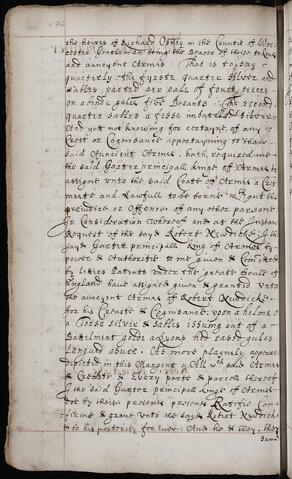 the heires of Richard in the Countie of Wor=
cester Gentleman being the bearer of these
and auncyent Armes. That is to say
quarterly the fyrste quarter silver and
sables parted per pale of fower peeces
on a gules five Besants. The second
quarter sables a fesse silver
And yet not knowing for certayne of any
Crest or Cognisance appertayning to those
said Auncient Armes, hath required me
the said Garter principall kinge of Armes to
assigne unto the said Coate of Armes a Cre
meete and lawfull to be borne without the
prejudice or Offence of any other persone
In Consideration whereof and at the
Request of the sayd Robert
sayd Garter principall king of Armes by
power & Authoritie to me given & Comitted
by letters Patents under the greate Seale of
England have assigned given & granted unto
the auncyent Armes of Robert
for his Creaste & Cognisance: upon a helme
a Torse silver & sables issuing out of a
Batilment golde a lyons hed rased gules
langued asure. As more playnely appeare
depicted in this Margent. All wch said Armes
& Creaste & Every parte & parcell thereof
I the said Garter principall kinge of Armes
doe by theise presents Ratifie Con=
firme & grant unto the sayd Robert
& to his posterity for Ever. And he & they, they
same